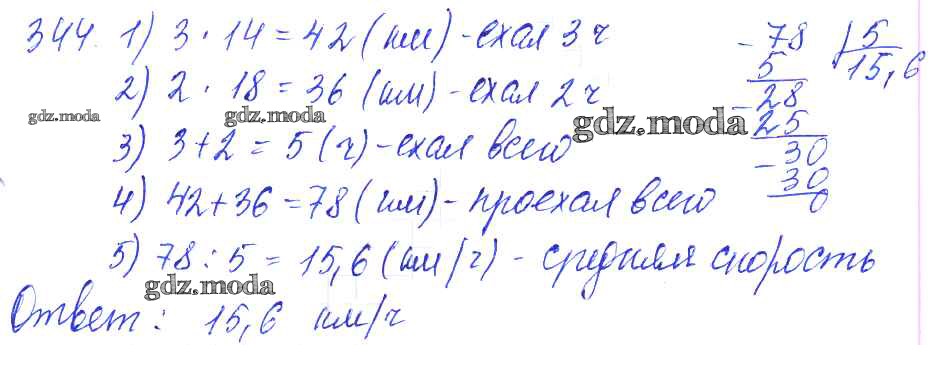 344. 1) 3 · 14 = 42 (км) - ехал 3 ч
2) 2 · 18 = 36 (км) - ехал 2 ч
3) 3 + 2 = 5 (ч) - ехал всего
4) 42 + 36 = 78 (км) - проехал всего
5) 78 : 5 = 15,6 (км/ч) - средняя скорость
Ответ: 15,6 км/ч
- 78 5
5 15,6
- 28
25
- 30
30
0
gdz.moda
gdz.moda
gdz.moda
gdz.moda